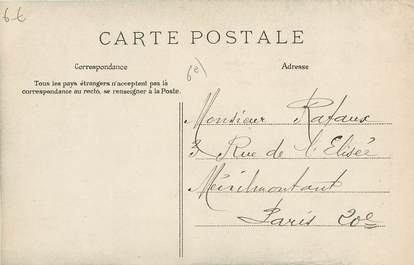 6-E
CARTE POSTALE
Correspondance
Adresse
Tous les pays étrangers n'acceptent pas la
correspondance au recto, se renseigner à la Poste.
60)
Monsieur Rafaux
3 Rue de l'Elisée
Ménilmontant
Paris 20e